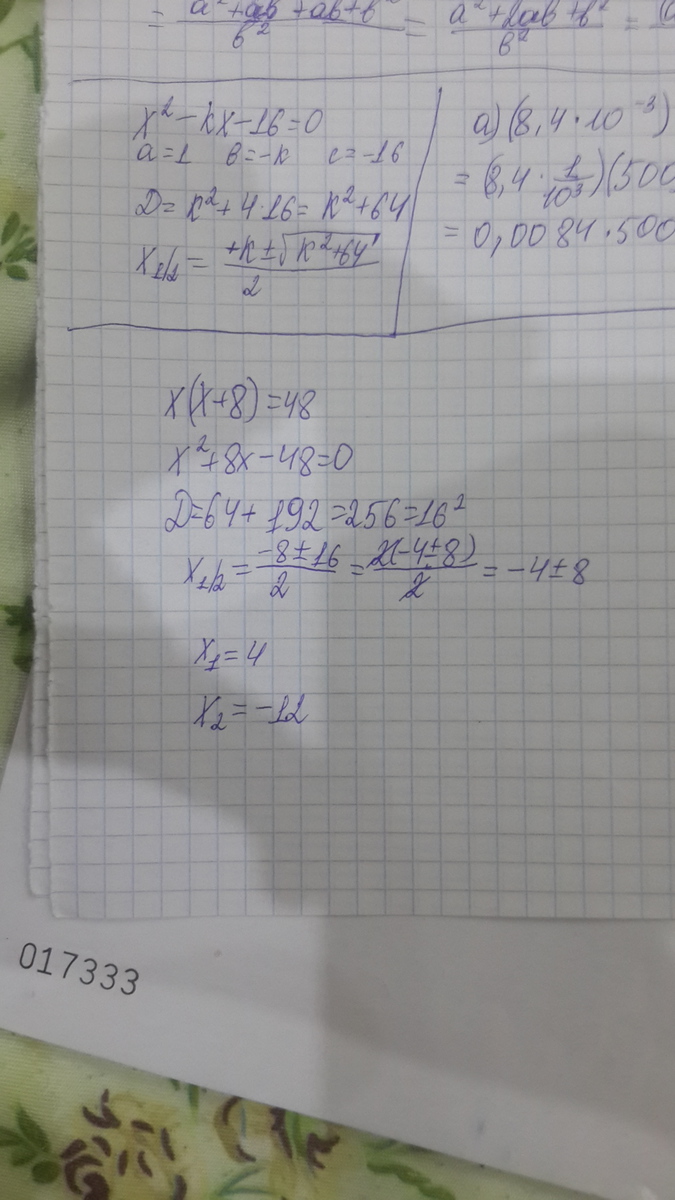 = a²+ab+ab+b² / b² = a²+2ab+b² / b² =
x²-kx-16=0
a=1 b=-k c=-16
D=k²+4·16=k²+64
x1/2 = +k±√k²+64 / 2
a)(8,4·10⁻³)
=(8,4·1/10³)(500
=0,0084·500
x(x+8)=48
x²+8x-48=0
D=64+192=256=16²
x1/2 = -8±16 / 2 = 2(-4±8) / 2 = -4±8
x₁=4
x₂=-12
017333